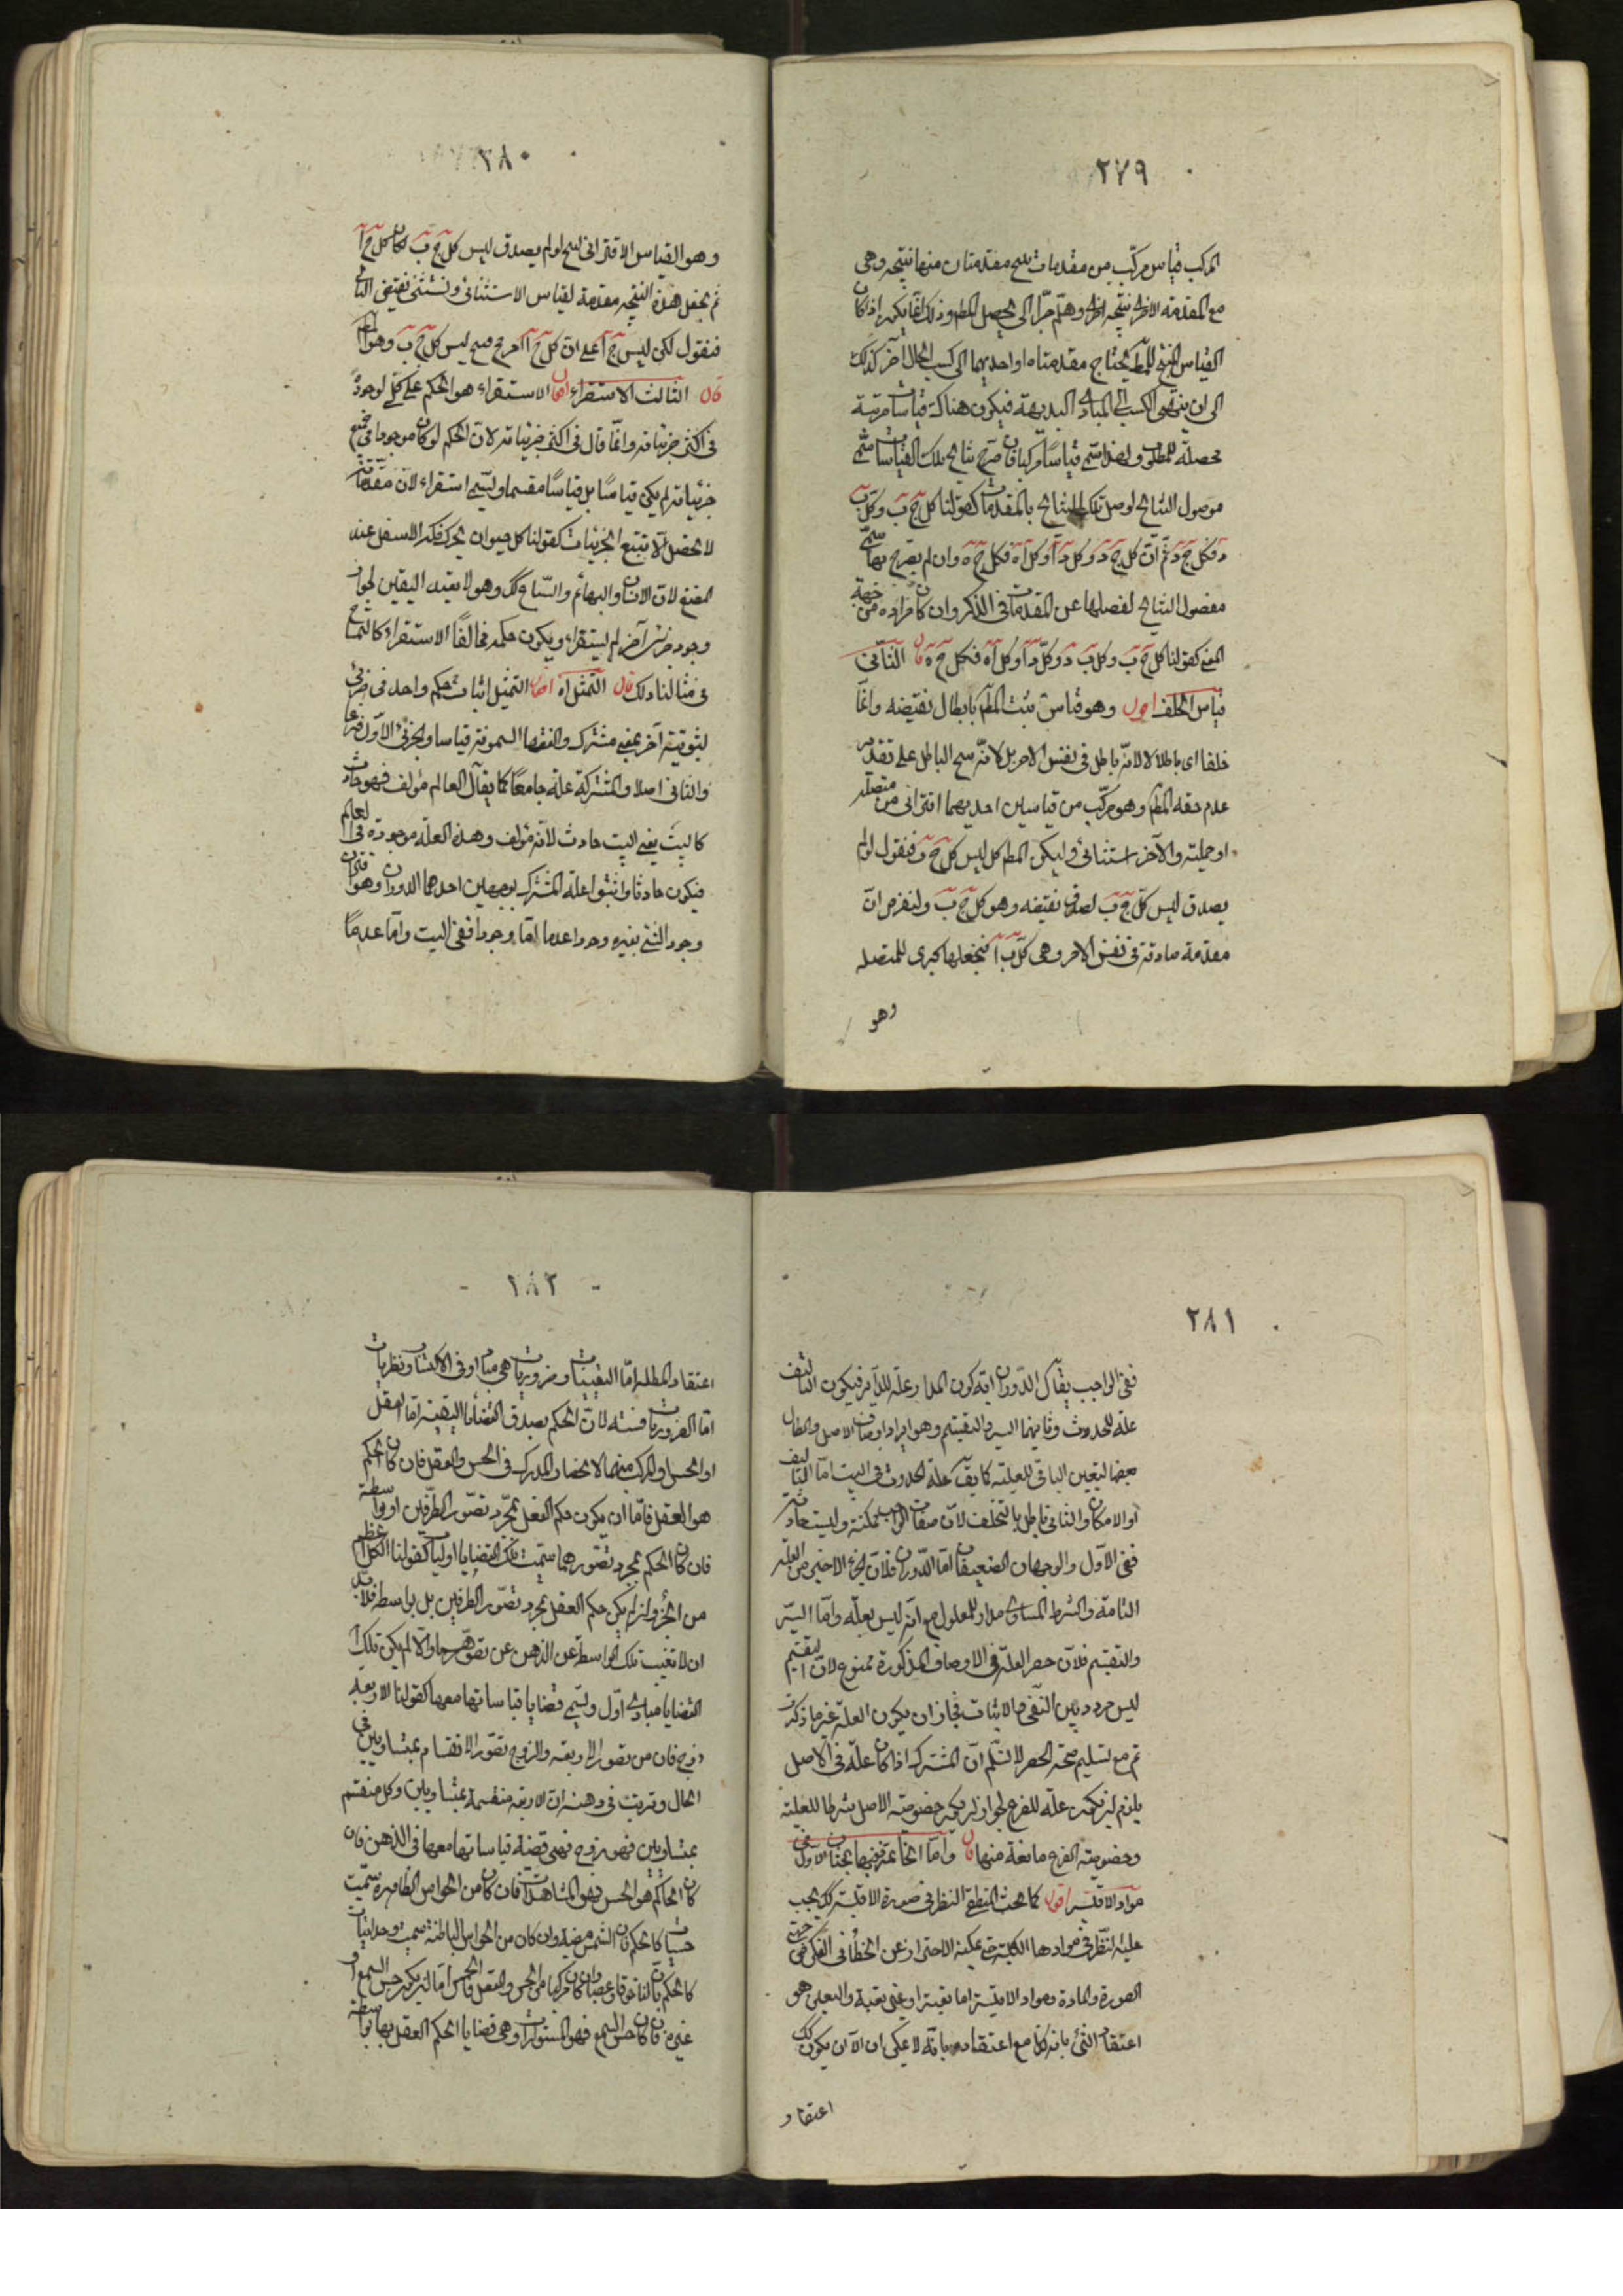 ٢٧٩
المركب قياس مركب من مقدمات ينتج مقدمتان منها نتيجة وهى
مع المقدمة الاخرى نتيجة اخرى وهلم جرا الى يحصل المط وذلك انما يكون اذا كان
القياس المنتج للمط يحتاج مقدمتاه او احديهما الى كسب الحال آخر كذلك
الى ان ينتهى الكسب الى المبادى البديهة فيكون هناك قياسات مرتبة
محصلة للمطلوب ولهذا سمى قياسا مركبا فان صرح بنتائج تلك القياسات سمى
موصول النتائج لوصل تلك النتائج بالمقدمات كقولنا كل ج ب وكل ب
د فكل ج د ثم ان كل ج د وكل د آ وكل آ ه فكل ج ه وان لم يصرح بها سمى
مفصول النتائج لفصلها عن المقدمات فى الذكر وان كان مراده من جهة
المعنى كقولنا كل ج ب وكل ب د وكل د آ وكل آ ه فكل ج ه قال الثانى
قياس الخلف اقول وهو قياس يثبت المط بابطال نقيضه وانما
خلفا اى باطلا لا لانه باطل فى نفس الامر بل لانه ينتج الباطل على تقدير
عدم حقه المط وهو مركب من قياسين احديهما اقترانى من متصلة
او حملية والآخر استثنائى وليكن المط كل ليس كل ج ب فنقول لو لم
يصدق ليس كل ج ب لصدق نقيضه وهو كل ج ب ولنفرض ان
مقدمة صادقة فى نفس الامر وهى كل ب آ فنجعلها كبرى للمتصلة
وهو
٢٨٠
وهو القياس الاقترانى ينتج لو لم يصدق ليس كل ج ب لكان كل ج آ
ثم يجعل هذه النتيجة مقدمة لقياس الاستثنائى ونستثنى نقيض التالى
فنقول لكن ليس ج آ على ان كل ج آ امر مح فينتج ليس كل ج ب وهو المط
قال الثالث الاستقراء اقول الاستقراء هو الحكم على كلى لوجوده
فى اكثر جزئياته وانما قال فى اكثر جزئياته لان الحكم لو كان موجودا فى جميع
جزئياته لم يكن قياسا بل قياسا مقسما ويسمى استقراء لان مقدماته
لا تحصل الا بتتبع الجزئيات كقولنا كل حيوان يحرك فكه الاسفل عند
المضغ لان الانسان والبهائم والسباع كك وهو لا يفيد اليقين لجواز
وجود جزئى آخر لم يستقراء ويكون حكمه مخالفا الاستقراء كالتمساح
فى مثالنا ذلك قال التمثيل اه اقول التمثيل اثبات حكم واحد فى جزئى
لثبوته آخر بمعنى مشترك والفقهاء يسمونه قياسا والجزئى الاول فرعا
والثانى اصلا والمشتركة علة جامعا كما يقال العالم مؤلف فهو حادث
كالبيت يعنى البيت حادث لانه مؤلف وهذه العلة موجودة فى العالم
فيكون حادثا واثبتوا علة المشترك بوجهين احدهما الدوران وهو اقتران
وجود الشئ بغيره وجودا وعدما اما وجودا ففى البيت واما عدما
٢٨١
ففى الواجب يقال الدوران اية كون المدار علة للداير فيكون التاليف
علة للحدوث وثانيهما السير والتقسيم وهو ايراد اوصاف الاصل وابطال
بعضها ليتعين الباقى للعلية كما يق علة الحدوث فى البيت اما التاليف
او الامكان والثانى باطل بالتخلف لان صفات الواجب ممكنة وليست حادثة
فتعين الاول والوجهان ضعيفان اما الدوران فلان الجزء الاخير من العلة
التامة والشرط المساوى مدار للمعلول مع انه ليس بعلة واما السير
والتقسيم فلان حصر العلة فى الاوصاف المذكورة ممنوع لان التقسيم
ليس مردد بين النفى والاثبات فجاز ان يكون العلة غير ما ذكرت
ثم مع تسليم صحة الحصر لا نسلم ان المشترك اذا كان علة فى الاصل
يلزم ان يكون علة للفرع لجواز ان يكون خصوصية الاصل شرطا للعلية
وخصوصية الفرع مانعة منها قال واما الخاتمة ففيها بحثان الاول فى
مواد الاقيسة اقول كما يجب المنطقى النظر فى صورة الاقيسة كك يجب
عليه النظر فى موادها الكلية حتى يمكنه الاحتراز عن الخطأ فى الفكر من جهتى
الصورة والمادة ومواد الاقيسة اما يقينية او غير يقينية واليقين هو
اعتقاد الشئ بانه كذا مع اعتقاده بانه لا يمكن ان الا ان يكون كذلك
اعتقاد
٢٨٢
اعتقاد المطلة اما اليقينيات وضروريات هى مباد اول فى الاكتساب ونظريات
اما الضروريات فستة لان الحاكم بصدق القضايا اليقينية اما العقل
او الحس او المركب منهما لانحصار المدرك فى الحس والعقل فان كان الحاكم
هو العقل فاما ان يكون حكم العقل بمجرد تصور الطرفين او بواسطة
فان كان الحكم بمجرد تصورهما سميت تلك القضايا اوليات كقولنا الكل اعظم
من الجزء وان لم يكن حكم العقل بمجرد تصور الطرفين بل بواسطة فلا بد
ان لا تغيب تلك الواسطة عن الذهن عن تصورهما والا لم يكن تلك
القضايا مبادى اول ويسمى قضايا قياساتها معها كقولنا الاربعة
زوج فان من تصور الاربعة والزوج تصور الانقسام بمتساويين فى
الحال وترتب فى ذهنه ان الاربعة منقسمة بمتساويين وكل منقسم
بمتساويين فهو زوج فهى قضية قياساتها معها فى الذهن فان
كان الحاكم هو الحس فهو المشاهدات فان كان من الحواس الظاهرة سميت
حسيات كالحكم بان الشمس مضيئة وان كان من الحواس الباطنة سميت وجدانيات
كالحكم بان لنا خوفا وغضبا وان كان مركبا من الحس والعقل فالحس اما ان يكون حس السمع او
غيره فان كان حس السمع فهو المتواترات وهى قضايا الحكم العقل بها بواسطة